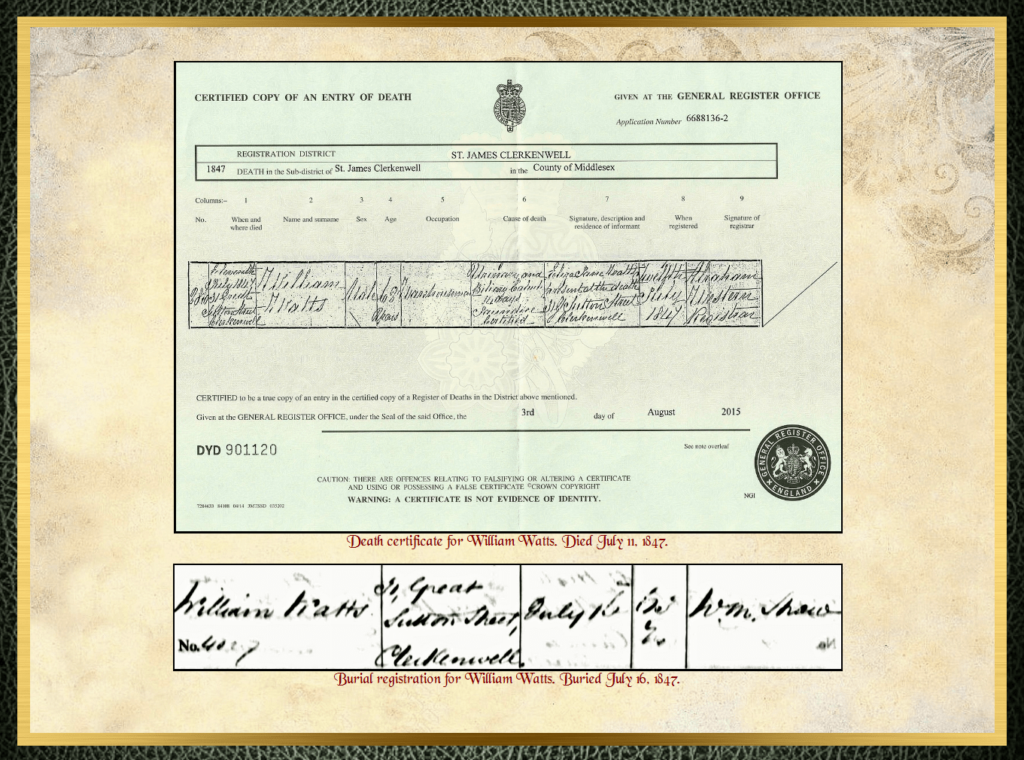 CERTIFIED COPY OF AN ENTRY OF DEATH
GIVEN AT THE GENERAL REGISTER OFFICE
Application Number 6688136-2
REGISTRATION DISTRICT ST. JAMES CLERKENWELL
1847 DEATH in the Sub-district of St. James Clerkenwell in the County of Middlesex
Columns:- 1 2 3 4 5 6 7 8 9
No. When and where died Name and surname Sex Age Occupation Cause of death Signature, description and residence of informant When registered Signature of registrar
Eleventh July 1847 Great Sutton Street Clerkenwell
William Watts
Male
68 years
Warehouseman
Urinary and Biliary 14 days Jaundice Certified
Watts present at the death Sutton Street Clerkenwell
Twelfth July 1847
Abraham Registrar
CERTIFIED to be a true copy of an entry in the certified copy of a Register of Deaths in the District above mentioned.
Given at the GENERAL REGISTER OFFICE, under the Seal of the said Office, the 3rd day of August 2015
DYD 901120
See note overleaf
GENERAL REGISTER OFFICE
ENGLAND
CAUTION: THERE ARE OFFENCES RELATING TO FALSIFYING OR ALTERING A CERTIFICATE
AND USING OR POSSESSING A FALSE CERTIFICATE ©CROWN COPYRIGHT
WARNING: A CERTIFICATE IS NOT EVIDENCE OF IDENTITY.
NGI
Death certificate for William Watts. Died July 11, 1847.
William Watts
No.
Great
Sutton Street,
Clerkenwell.
July 16
Wm. Shaw
Burial registration for William Watts. Buried July 16, 1847.